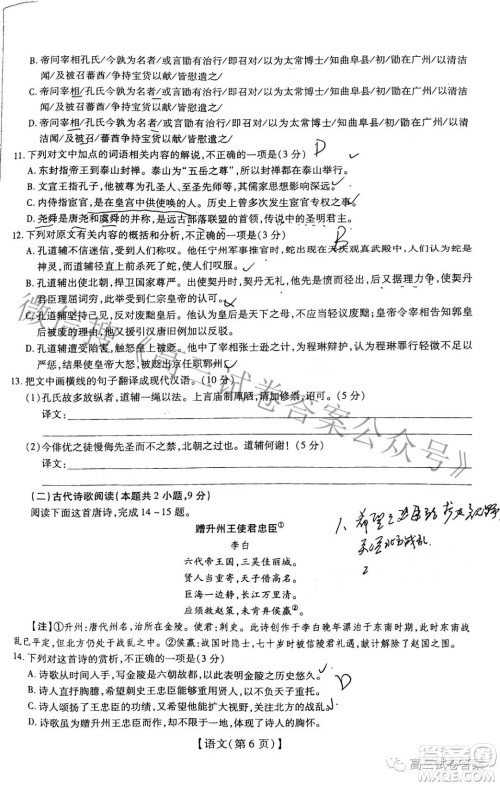 B. 帝问宰相孔氏/今孰为名者/或言勖有治行/即召对/以为太常博士/知曲阜县/初/勖在广州/以清洁
闻/及被召蕃酋/争持宝货以献/皆慰遣之/
C. 帝问宰相/孔氏今孰为名者/或言勖有治行/即召对/以为太常博士/知曲阜县/初/勖在广州/以清洁
闻/及被召/蕃酋争持宝货以献/皆慰遣之/
D. 帝问宰相/孔氏今孰为名者/或言勖有治行/即召对/以为太常博士/知曲阜县/初/勖在广州/以
清洁闻/及被召蕃酋/争持宝货以献/皆慰遣之/
11. 下列对文中加点的词语相关内容的解说,不正确的一项是(3 分) D
A. 东封指帝王到泰山封禅。泰山为“五岳之尊”,历史上封禅大都在泰山举行。
B. 文宣王指孔子,也被尊为孔圣人、至圣先师等,其儒家思想影响深远。
C. 中人指宦官,是在皇宫中供使唤的人。历史上曾多次发生宦官专权之事。
D. 尧舜是唐尧和虞舜的并称,是远古部落联盟的首领,传说中的圣明君主。
12. 下列对原文有关内容的概括和分析,不正确的一项是(3 分) B
A. 孔道辅不信迷信,受到人们叹服。他任宁州军事推官时,蛇出现在天庆观真武殿中,人们认为蛇是
神灵,而孔道辅径直向前杀死了蛇,使人们叹服。
B. 孔道辅出使北朝,捍卫国家尊严。出使契丹时,他愤然退出侮辱先圣的宴席,后又据理力争,使契丹
君臣理屈词穷,受到宋仁宗皇帝的认可。
C. 孔道辅坚持公义,反对废黜皇后。他认为皇后是天下之母,不应当轻易废黜,在皇帝告知他郭皇
后应被废黜的情况后,仍据理力争。
D. 孔道辅遭受陷害,气愤难平而去世。他上了宰相张士逊之计,为程琳辩护,认为程琳罪行轻微不足
以问罪,结果使皇帝大怒,自己被贬职任职郓州。
13. 把文中画横线的句子翻译成现代汉语。(10 分)
(1)孔氏故多放纵者,道辅一绳以法。上言庙制庳陋,请加修崇,诏可。(5 分)
译文:
(2)今俳优之徒慢侮先圣而不之禁,北朝之过也。道辅何谢!(5 分)
译文:
(二)古代诗歌阅读(本题共 2 小题,9 分)
阅读下面这首唐诗,完成 14~15 题。
赠升州王使君忠臣①
李白
六代帝王国,三吴佳丽城。
贤人当重寄,天子借高名。
巨海一边静,长江万里清。
应须救赵策,未肯弃侯嬴②。
【注】①升州:唐代州名,治所在金陵。使君:刺史。此诗创作于李白晚年漂泊于东南一带时,此时安史之
乱已平定,但北方仍处于战乱中。②侯嬴:战国时隐士,七十岁时被信陵君礼遇,出奇策解除了赵国之围。
14. 下列对这首诗的赏析,不正确的一项是(3 分) D
A. 诗歌从时间入手,写金陵是六朝故都,以此表明金陵悠久的历史。
B. 诗人直抒胸臆,希望刺史王忠臣能够重用自己,使自己发挥余热。
C. 诗歌借助想象,写出了忠臣所能扩大视野,关注天下,境界阔大。
D. 诗歌虽为赠升州刺史王忠臣的作品,但诗人更重在表现自己的情怀。
【语文(第 6 页)】
微信搜《高三试卷答案公众号》
高三试卷答案